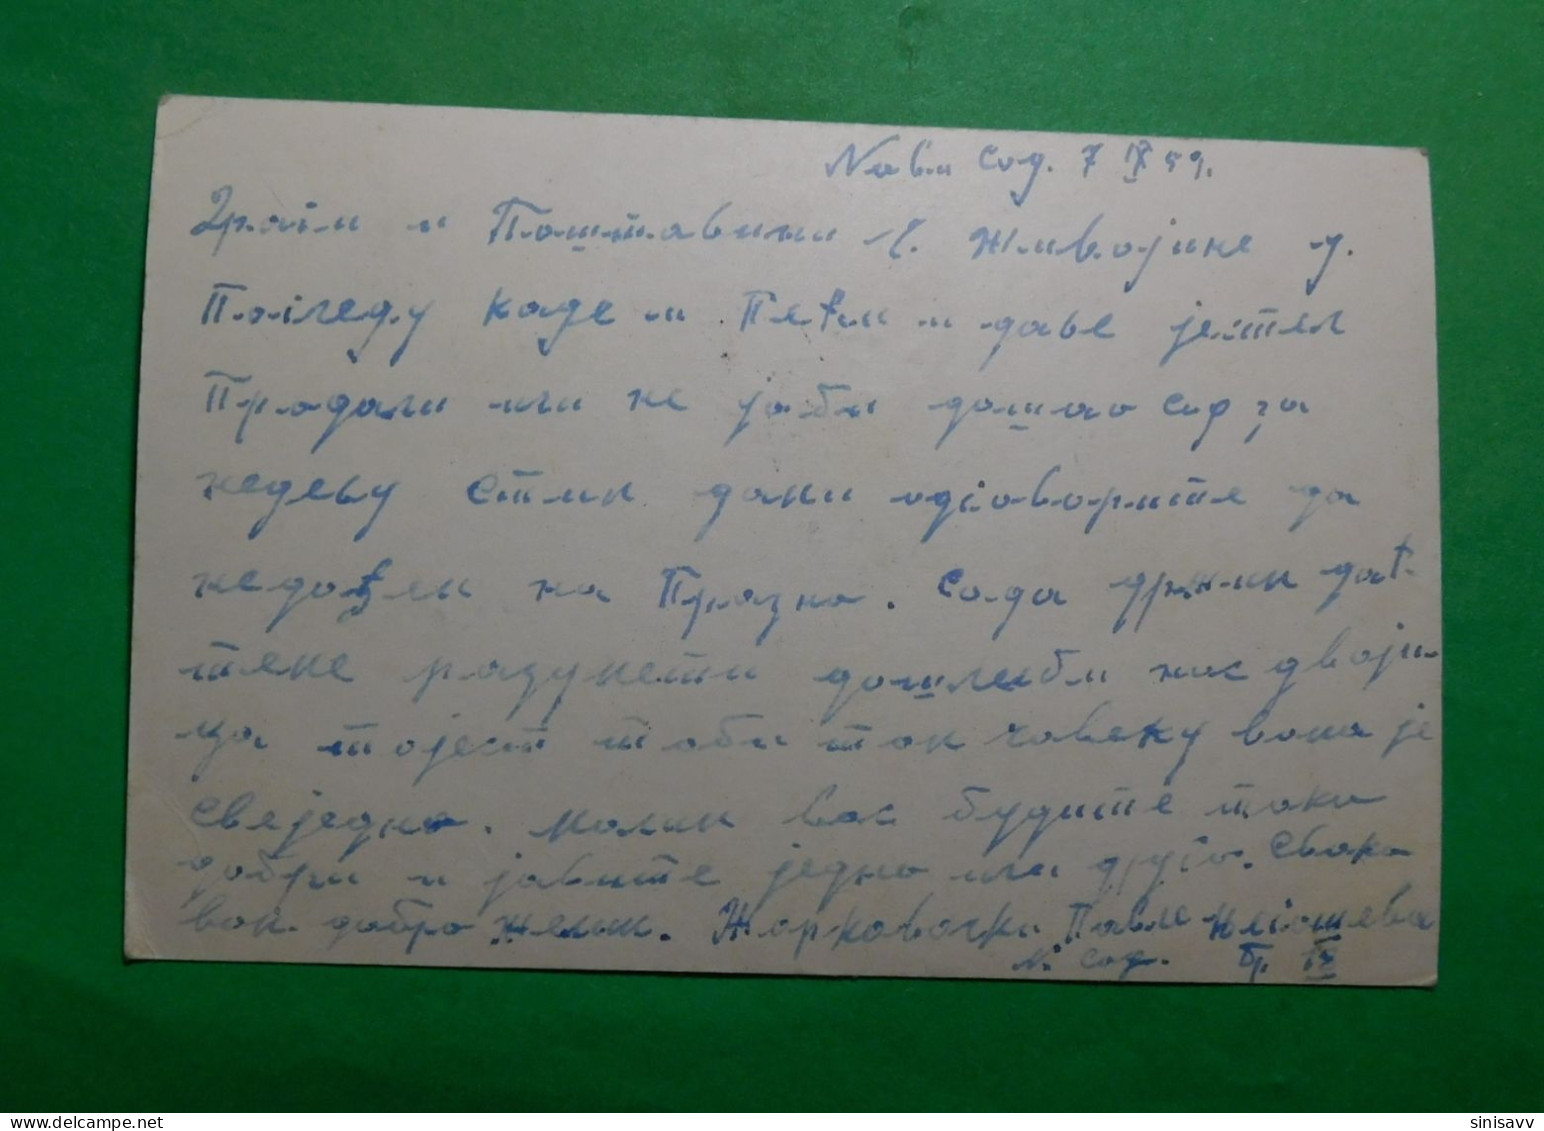 Нови Сад. 7 IX 59.
Драги и Поштавини Ч. Живојине у.
Погледу каде и Пећи и даве јетел
Продали или не јаби дошао сад за
недељу стим дани одговорите да
недођем на Празно. Сада држим даћ-
тене разумети дошлиби нас двоји-
ца тојест тоби том човеку вона је
свеједно. молим вас будите тако
добри и јавите једно или друго. свако
вам добро желим. Жарковачки Павле Његошева
Н. Сад. Бр.
sinisavv